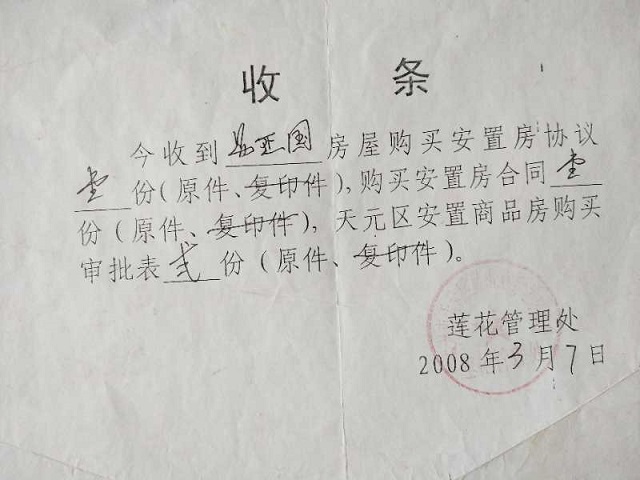 收 条
今收到易亚国房屋购买安置房协议
壹份(原件、复印件),购买安置房合同壹
份(原件、复印件),天元区安置商品房购买
审批表贰份(原件、复印件)。
莲花管理处
2008年3月7日